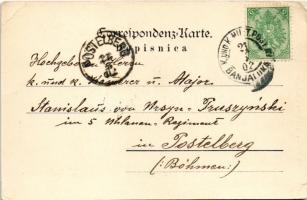 Correspondenz-Karte.
Dopisnica
POSTELBERG
K. UND K. MILIT. POST
BANJALUKA
Hochgeboren Herrn
k. und k. Kämmerer u. Major
Stanislaus von Ursyn-Pruszynski
im 5 Uhlanen-Regiment
in Postelberg
(:Böhmen:)